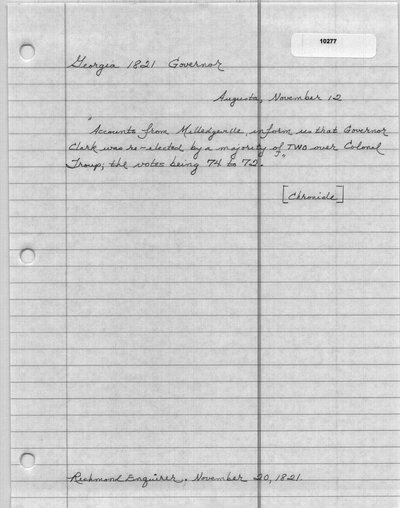 10277
Georgia 1821 Governor
Augusta, November 12
"Accounts from Milledgeville, inform us that Governor
Clark was re-elected by a majority of TWO over Colonel
Troup; the votes being 74 to 72."
[Chronicle]
Richmond Enquirer. November 20, 1821.